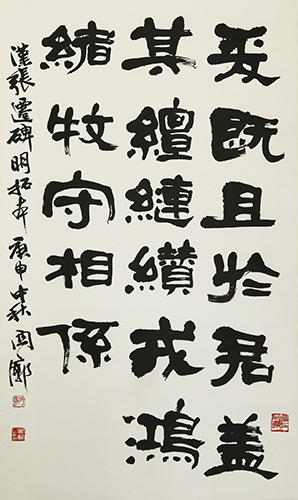 爰既且於君盖
其繵縺纘戎鴻
緒牧守相係
漢張遷碑明拓本 庚申中秋